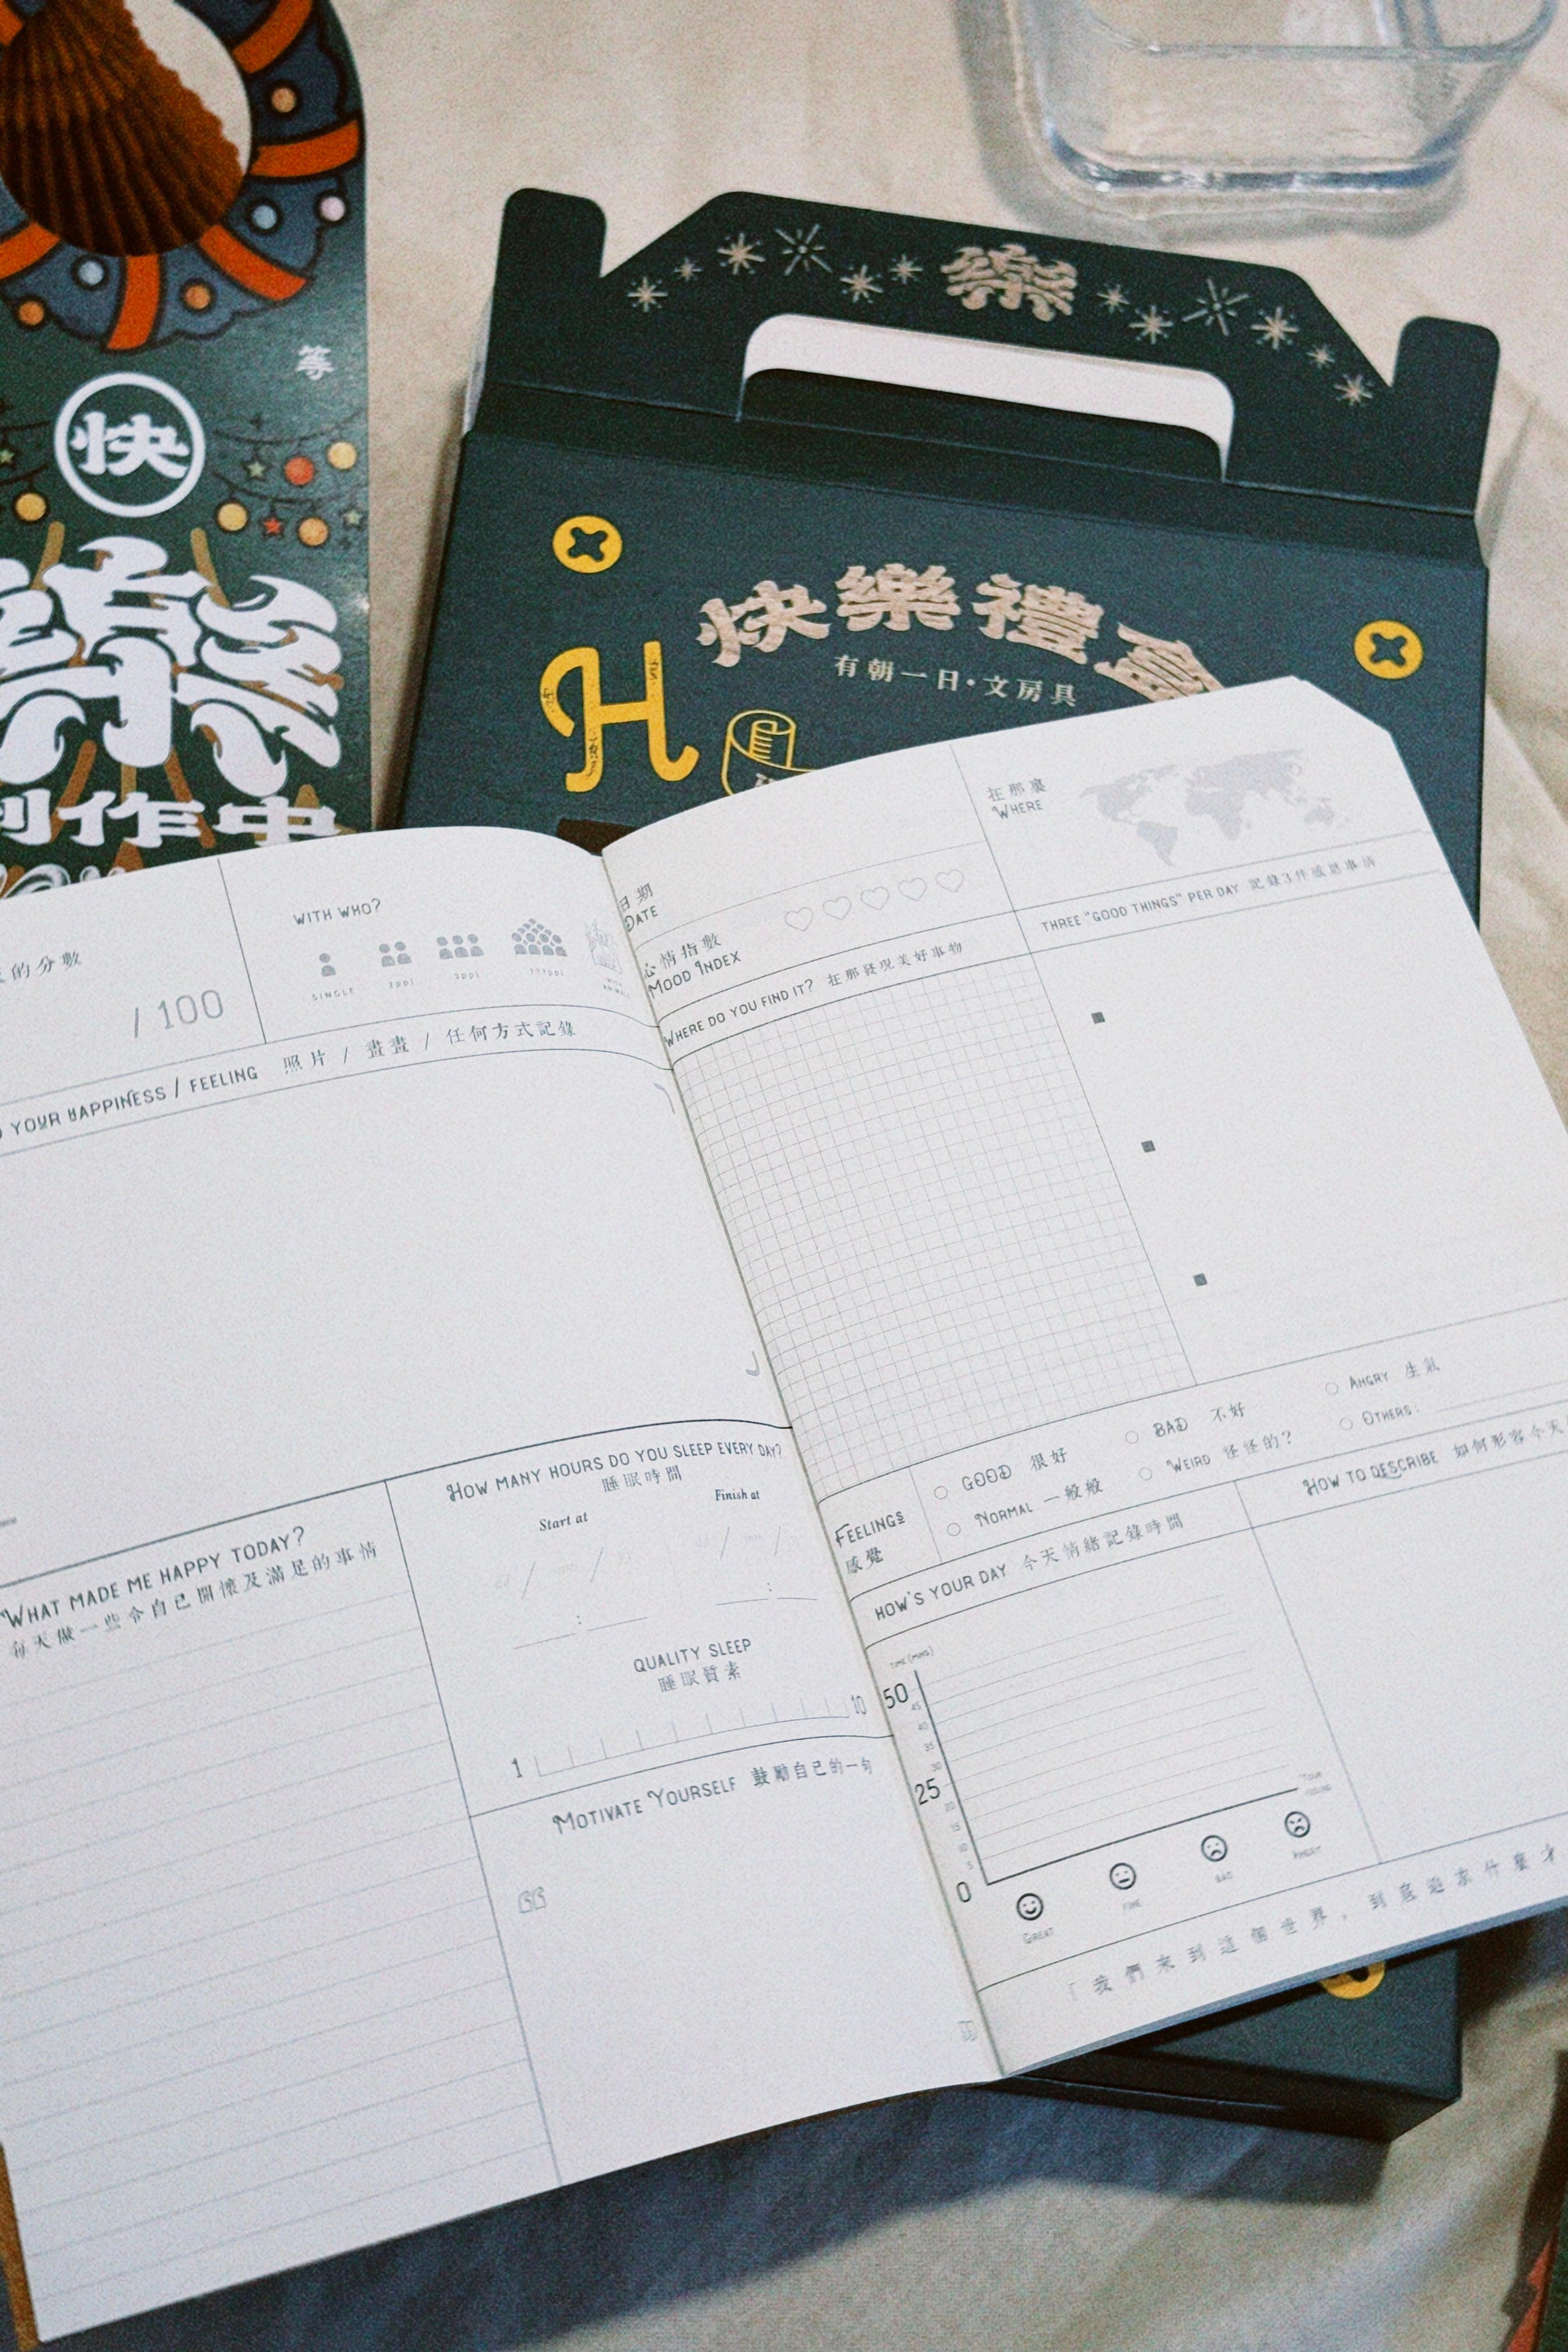 等
快
樂
創作中
樂
快樂禮盒
有朝一日•文房具
H
的分數
/ 100
WITH WHO?
SINGLE
2ppl
3ppl
???ppl
YOUR HAPPINESS / FEELING 照片 / 畫畫 / 任何方式記錄
WHAT MADE ME HAPPY TODAY?
每天做一些令自己開懷及滿足的事情
HOW MANY HOURS DO YOU SLEEP EVERY DAY?
睡眠時間
Start at
Finish at
QUALITY SLEEP
睡眠質素
1
10
MOTIVATE YOURSELF 鼓勵自己的一句
日期
DATE
心情指數
MOOD INDEX
在那裏
WHERE
WHERE DO YOU FIND IT? 在那發現美好事物
THREE "GOOD THINGS" PER DAY 記錄3件感恩事情
FEELINGS
感覺
GOOD 很好
BAD 不好
ANGRY 生氣
NORMAL 一般般
WEIRD 怪怪的?
OTHERS:
HOW'S YOUR DAY 今天情緒記錄時間
HOW TO DESCRIBE 如何形容今天
TIME (MINS)
50
45
40
35
30
25
20
15
10
5
0
GREAT
FINE
BAD
ANGRY
「我們來到這個世界，到底追求什麼才